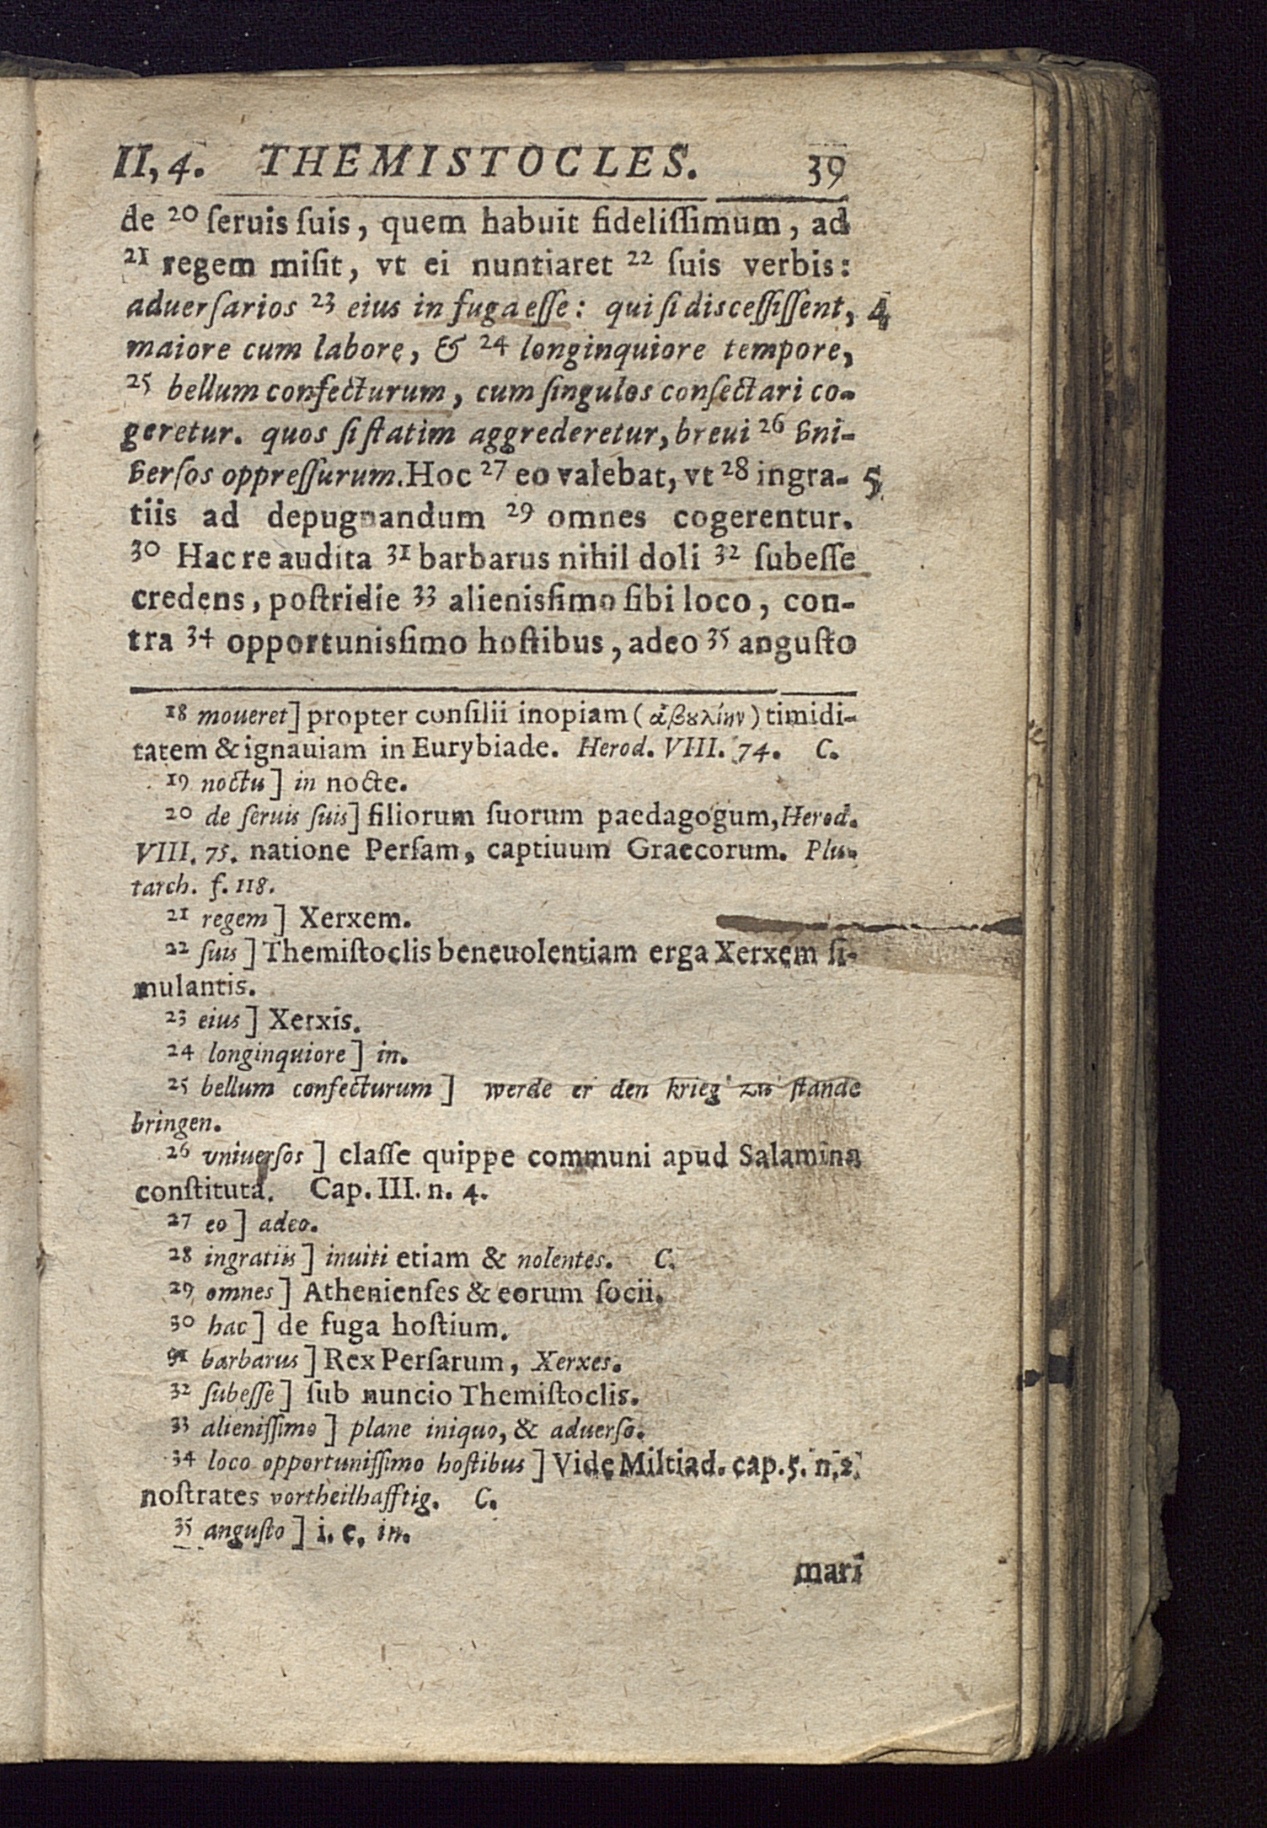 II, 4. THEMISTOCLES. 39
de 20 ſeruis ſuis, quem habuit fideliſſimum, ad
21 regem miſit, vt ei nuntiaret 22 ſuis verbis:
aduerſarios 23 eius in fuga eſſe: qui ſi disceſſiſſent, 4
maiore cum labore, & 24 longinquiore tempore,
25 bellum confecturum, cum ſingulos conſectari co-
geretur. quos ſi ſtatim aggrederetur, breui 26 vni-
verſos oppreſſurum. Hoc 27 eo valebat, vt 28 ingra- 5
tiis ad depugnandum 29 omnes cogerentur.
30 Hac re audita 31 barbarus nihil doli 32 ſubeſſe
credens, poſtridie 33 alieniſſimo ſibi loco, con-
tra 34 opportuniſſimo hoſtibus, adeo 35 anguſto
18 moueret] propter conſilii inopiam (ἀβουλίην) timidi-
tatem & ignauiam in Eurybiade. Herod. VIII. 74. C.
19 noctu] in nocte.
20 de ſeruis ſuis] filiorum ſuorum paedagogum, Herod.
VIII. 75. natione Perſam, captiuum Graecorum. Plu-
tarch. f. 118.
21 regem] Xerxem.
22 ſuis] Themiſtoclis beneuolentiam erga Xerxem ſi-
mulantis.
23 eius] Xerxis.
24 longinquiore] in.
25 bellum confecturum] werde er den krieg zu ſtande
bringen.
26 vniuerſos] claſſe quippe communi apud Salamina
conſtituta. Cap. III. n. 4.
27 eo] adeo.
28 ingratiis] inuiti etiam & nolentes. C.
29 omnes] Athenienſes & eorum ſocii.
30 hac] de fuga hoſtium.
31 barbarus] Rex Perſarum, Xerxes.
32 ſubeſſe] ſub nuncio Themiſtoclis.
33 alieniſſimo] plane iniquo, & aduerſo.
34 loco opportuniſſimo hoſtibus] Vide Miltiad. cap. 5. n. 2.
noſtrates vortheilhafftig. C.
35 anguſto] i. e. in.
mari